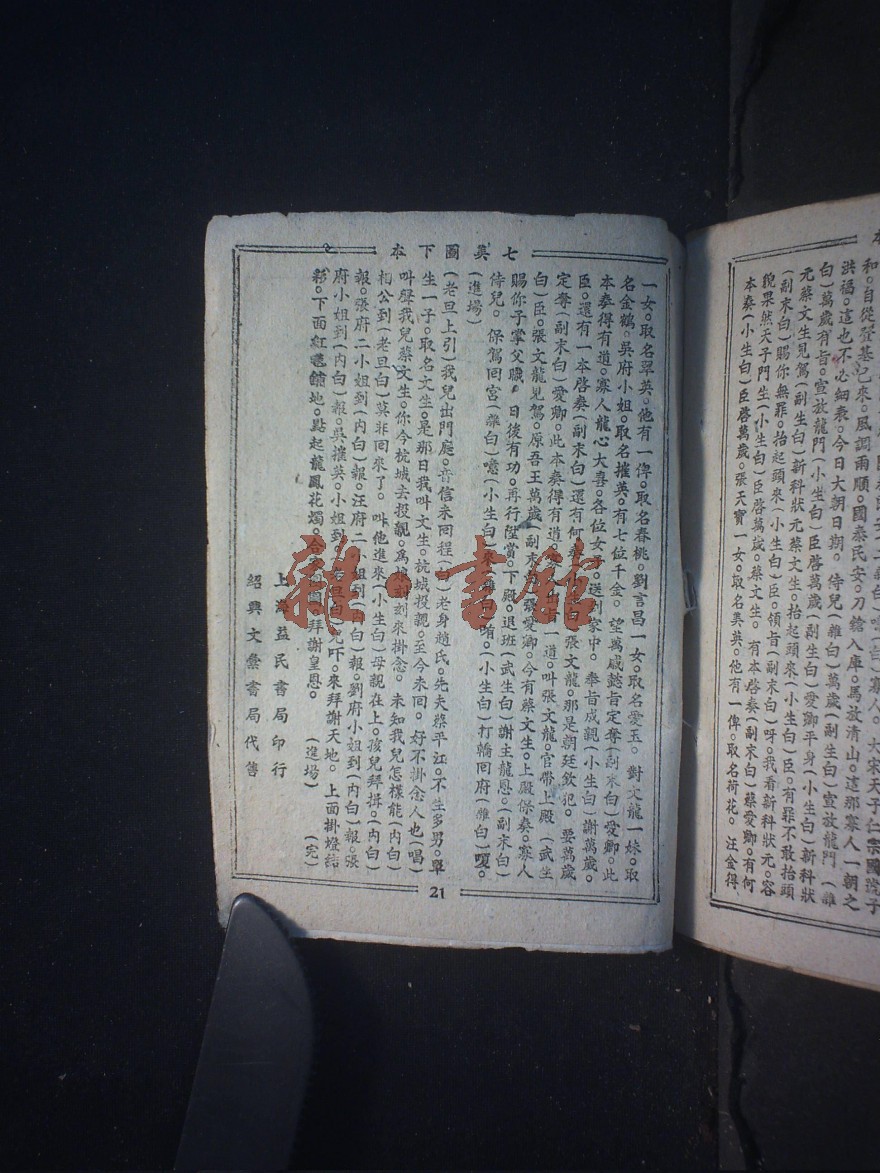 本
和。自從登基已來。風調雨順。國泰民安。刀槍入庫。馬放清山。這那寡人一朝之
洪福。這也不必細表。今日大朝日期。侍兒(雜白)萬歲(副末白)宣放龍門(雜
白)萬歲有旨。宣放龍門(小生白)臣啓萬歲(副生白)愛卿平身(小生白)新科狀
元蔡文生見駕(副生白)新科狀元蔡文生。抬起頭來(小生白)臣。有罪不敢抬頭
(副末白)賜你無罪。抬起頭來(小生白)臣。領旨(副末白)呀。我看新科狀元。容
貌果然天子門生(小生白)臣啓萬歲。蔡文生。有本啓奏(副末白)蔡愛卿。有何
本奏(小生白)臣啓萬歲。張天寶一女。取名美英。他有一俾。取名荷花。汪金得
七美圖下本
一女。取名翠英。他有一俾。取名春桃。劉言昌一女。取名愛玉。對文龍一妹。取
名金鶴。吳府小姐。取名摧英。有七位千金。望萬歲懿旨定奪(副末白)愛卿。此
本奏得有道。寡人龍心大喜。各位女子。送到家中。奉旨成親(小生白)謝萬歲。
臣。還有一本啓奏(副末白)還有何 張文龍。那是朝廷欽犯。要萬歲
定奪(副末白)愛卿。此本奏得有道 一道。叫張文龍。官帶上殿(武生
白)臣。張文龍見駕。原吾王萬歲(副末 張愛卿。今有蔡文生。上殿保奏。寡人
賜你子掌父職。日後有功。再行陞賞。下殿。退班(武生白)謝主龍恩。(副末白)
侍兒。保駕回宮(雜白)噫(小生白 唷。(小生白)打轎回府(雜白)嗄。
(進場)
(老旦上引)我兒出門庭。音信未回程(白)老身趙氏。先夫蔡平江。不生多男。單
生一子。取名文生。是那日我叫文生。杭城投親。至今未回。好不掛念人也(唱)
叫聲我兒蔡文生。你今杭城去投親。爲娘 刻來掛念。未知我兒怎樣能(内白)
相公到(老旦白)莫非回來了。叫他進來(小生白)母親在上。孩兒拜揖。(内白)
報。張府二小姐到(内白)報。汪府二小姐到(内白)報。劉府小姐到(内白)報。張
府小姐到(内白)報。吳摧英。小姐到 兒吓。來拜謝天地。上面掛燈結
彩。下面紅氊鋪地。點起龍鳳花燭。合 拜謝皇恩。 (進場) (完)
上海益民書局印行
紹興文彙書局代售
21
雜·書館